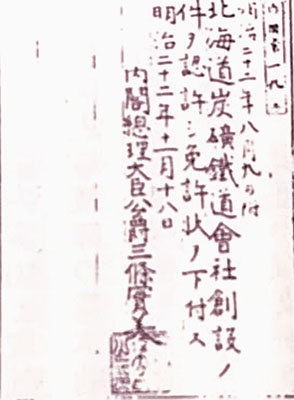 明治二十二年八月九日付
北海道炭礦鐵道會社創設ノ
件ヲ認許シ免許狀ノ下付ス
明治二十二年十一月十八日
内閣總理大臣公爵三條實美